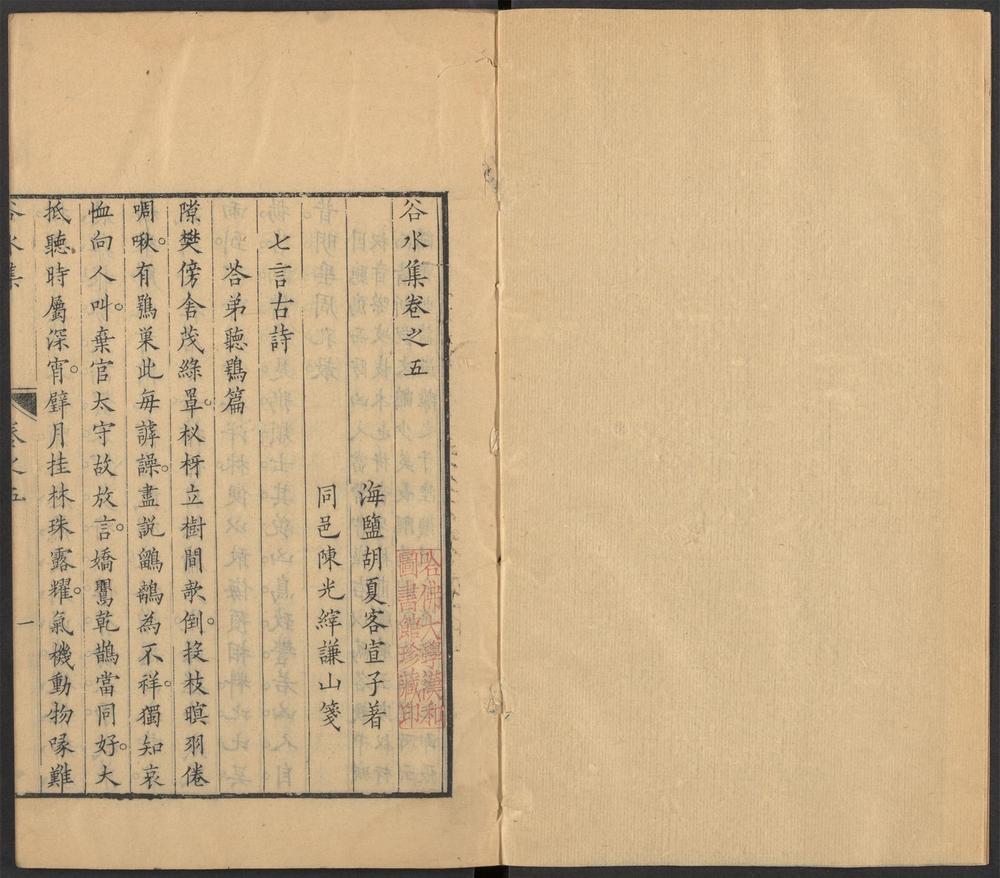 谷水集卷之五
海鹽胡夏客宣子著
同邑陳光縡謙山箋
七言古詩
荅弟聽鵶篇
隙樊傍舍茂綠罩。杈枒立樹間欹倒。投枝暝羽倦
啁啾。有鵶巢此每謼譟。盡説為不祥。獨知哀
恤向人叫。棄官太守故放言。嬌鸎乾鵲當同好。大
抵聽時屬深宵。璧月挂林珠露耀。氣機動物喙難
谷水集 卷之五 一
哈佛大學漢和
圖書館珍藏印